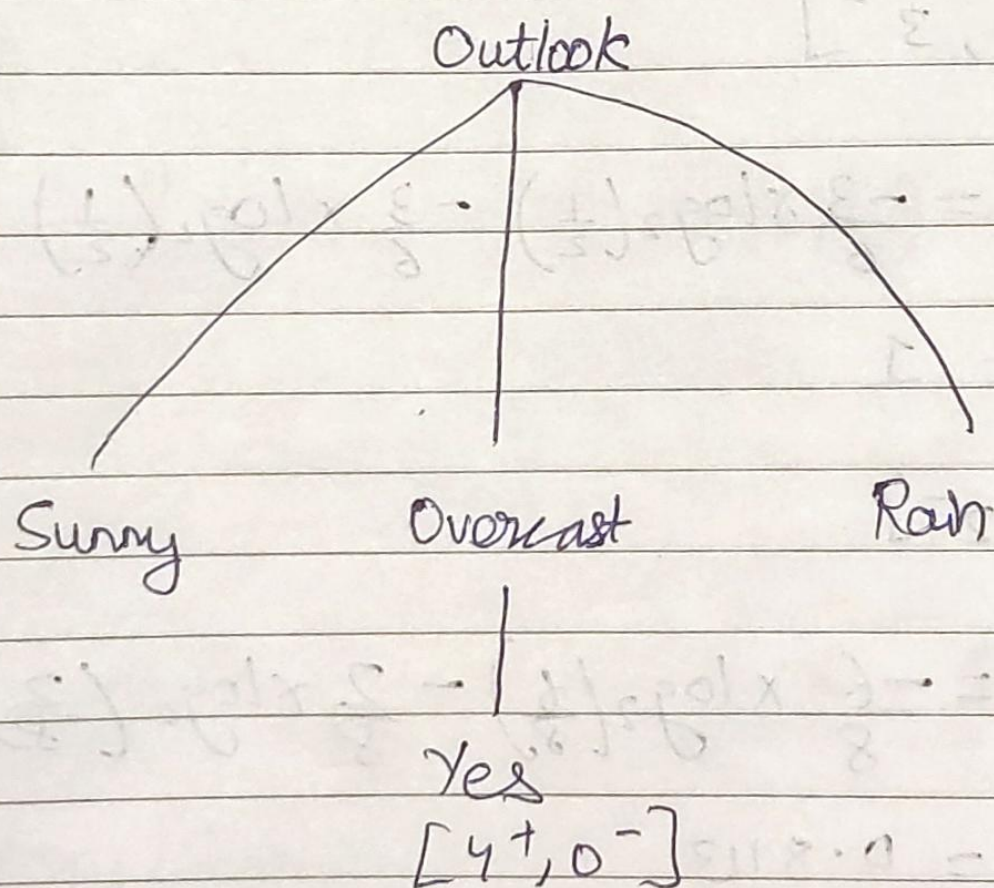 Outlook
Sunny Overcast Rain
Yes
[4+, 0-]